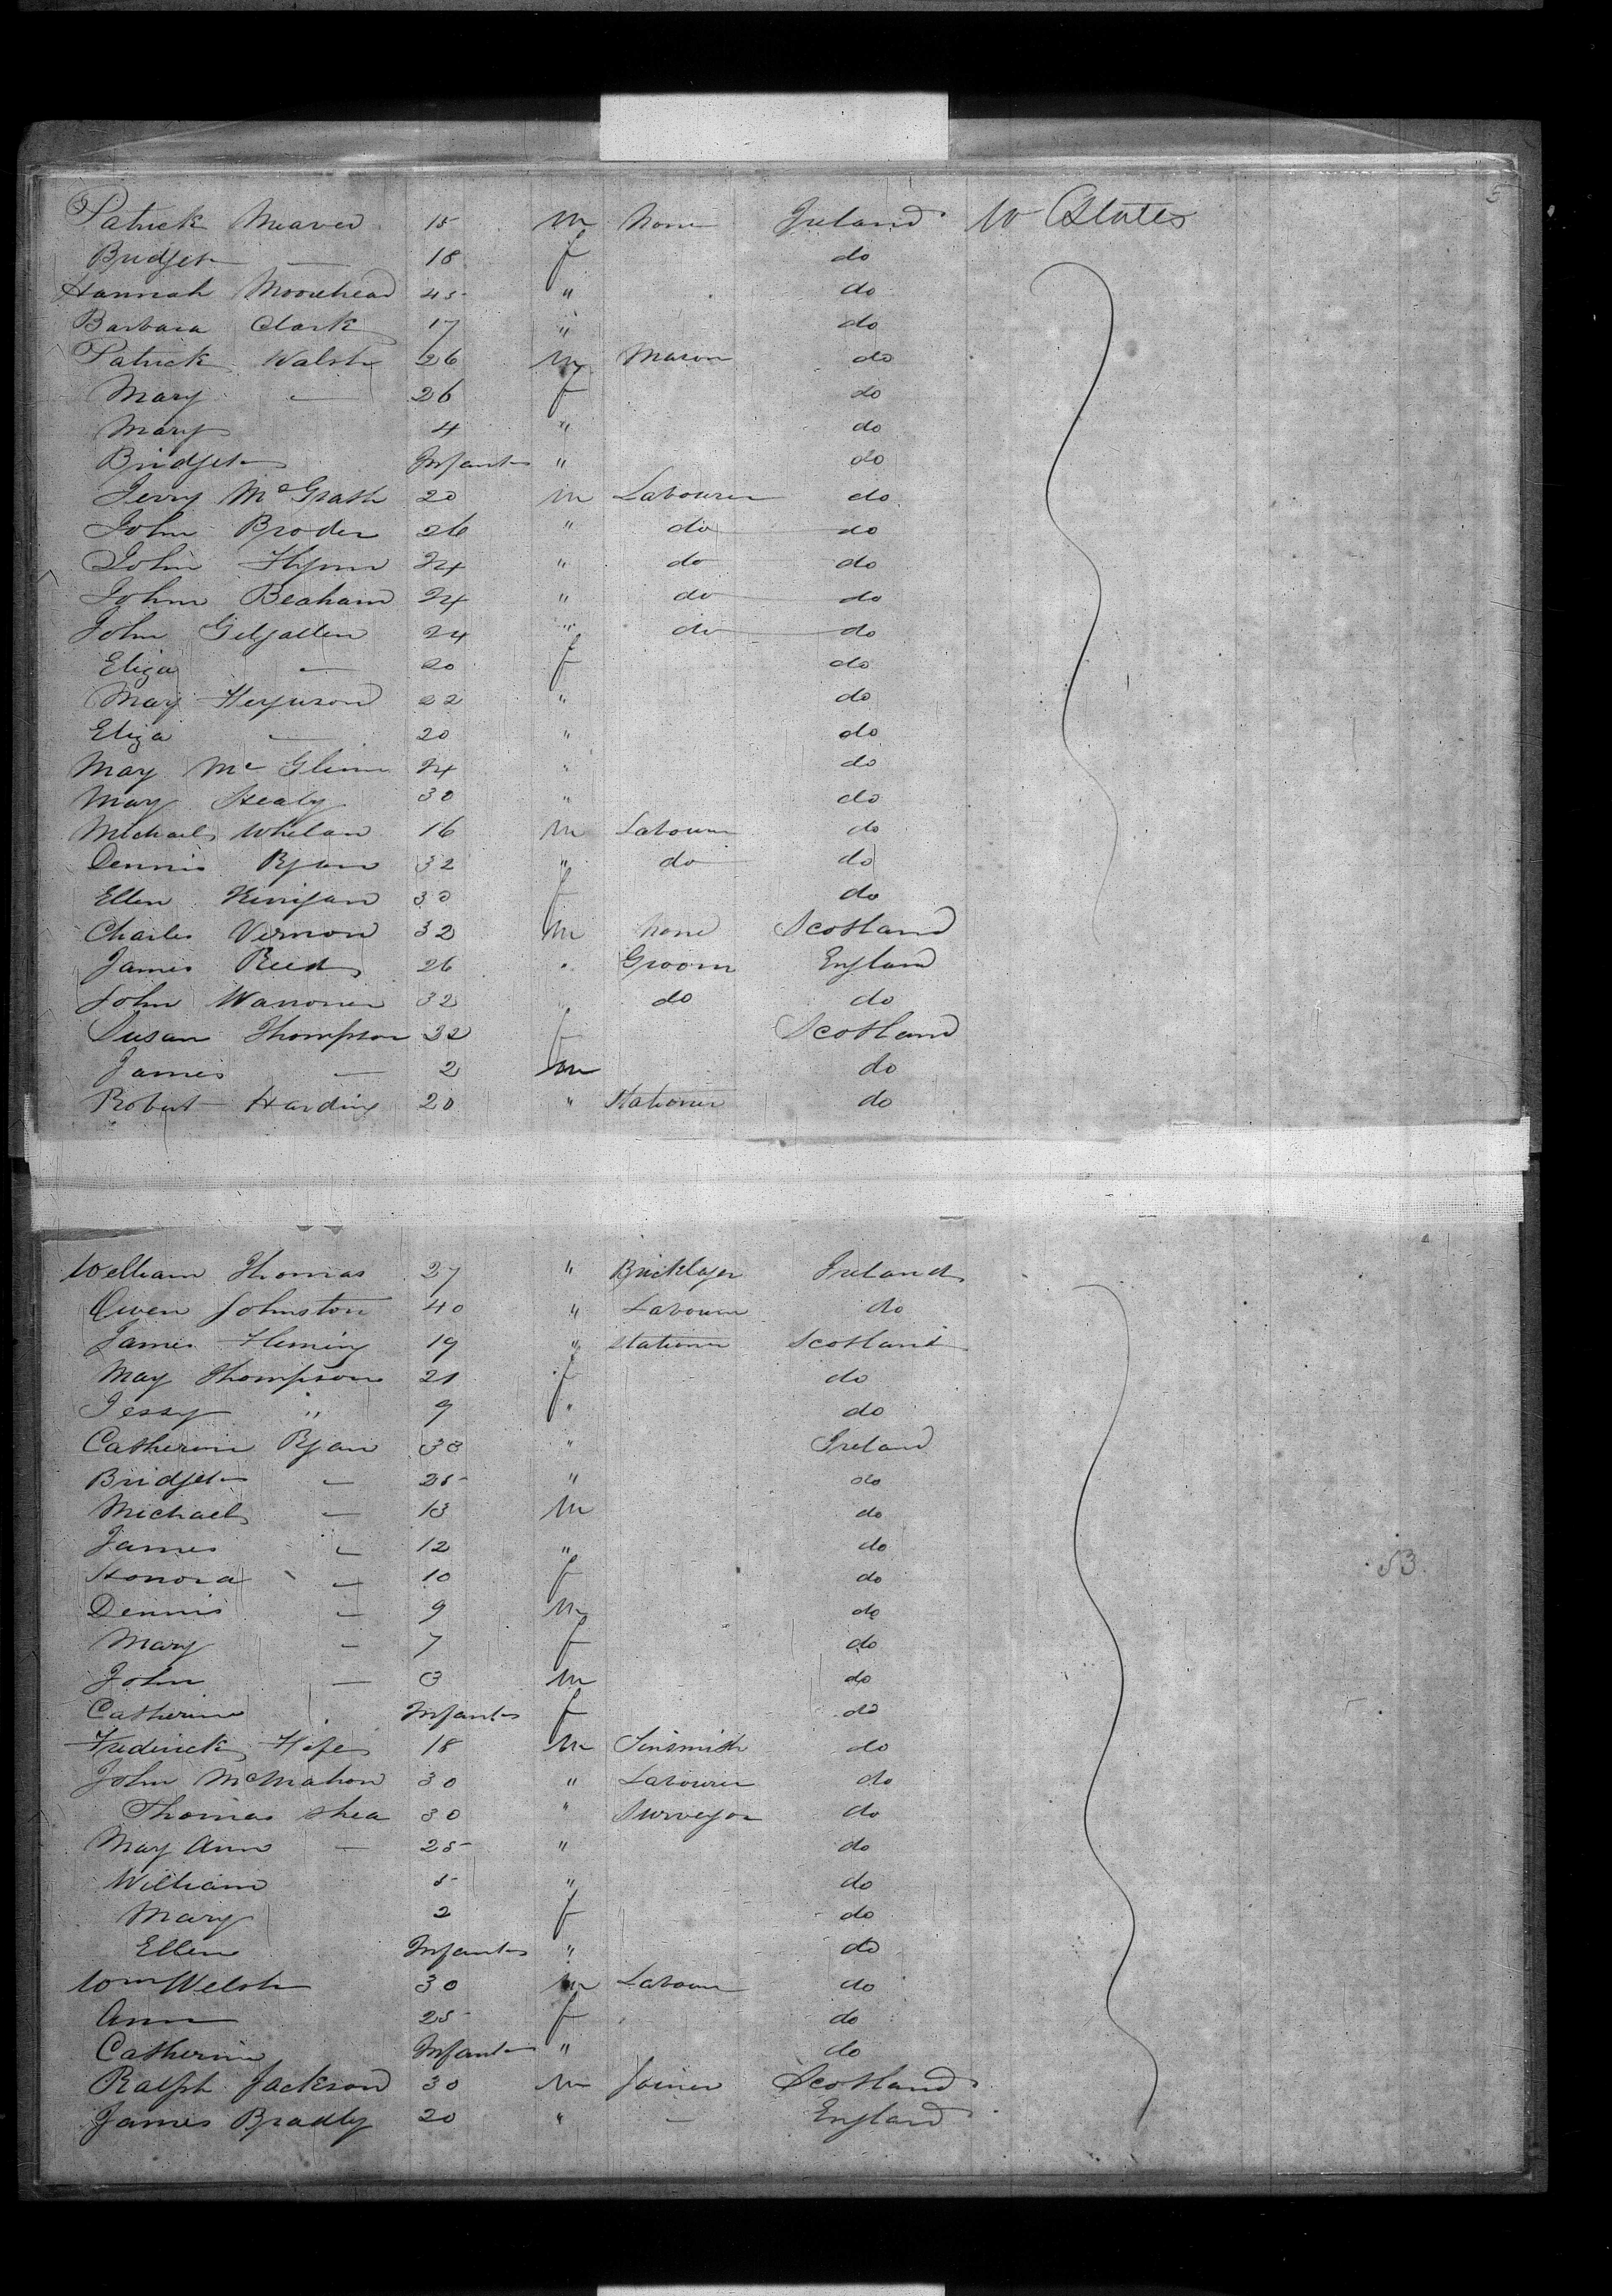 5
Patrick Meaved 15 m None Ireland W States
Bridget — 18 f do
Hannah Moorehead 45 " do
Barbara Clark 17 " do
Patrick Walsh 26 m Mason do
Mary — 26 f do
Mary 4 " do
Bridget Infant " do
Jerry McGrath 20 m Labourer do
John Broder 26 " do do
John Flynn 24 " do do
John Beaham 24 " do do
John Gilgallen 24 " do do
Eliza — 20 f do
May Ferguson 22 " do
Eliza — 20 " do
May McGlinn 24 " do
May Healy 30 " do
Michael Whelan 16 m Labourer do
Dennis Ryan 32 " do do
Ellen Kinigan 30 f do
Charles Vernon 32 m None Scotland
James Reed 26 " Groom England
John Warroner 32 " do do
Susan Thompson 32 f Scotland
James — 2 m do
Robert Harding 20 " Stationer do
William Thomas 27 " Bricklayer Ireland
Owen Johnston 40 " Labourer do
James Fleming 19 " Stationer Scotland
May Thompson 21 f do
Jessy " 9 " do
Catherine Ryan 38 " Ireland
Bridget — 25 " do
Michael — 13 m do
James — 12 " do
Honora — 10 f do
53
Dennis — 9 m do
Mary — 7 f do
John — 3 m do
Catherine Infant f do
Frederick 18 m Tinsmith do
John McMahon 30 " Labourer do
Thomas Shea 30 " Surveyor do
May Ann — 25 " do
William 5 " do
Mary 2 f do
Ellen Infant " do
Wm Welsh 30 m Labour do
Ann 25 f do
Catherine Infant " do
Ralph Jackson 30 m Joiner Scotland
James Bradly 20 " — England